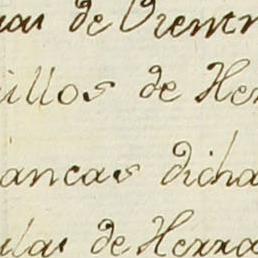 de Vientr
illos de Her
ancas dicha
ulas de Herra